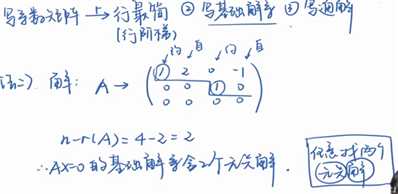 写系数矩阵 → 行最简 ② 写基础解系 ③ 写通解
(行阶梯)
约 自 约 自
法二) 解: A → ( 1 2 0 -1
0 0 1 0
0 0 0 0 )
n-r(A) = 4-2 = 2
∴ AX=0 的基础解系含2个无关解.
任意找两个
无关解